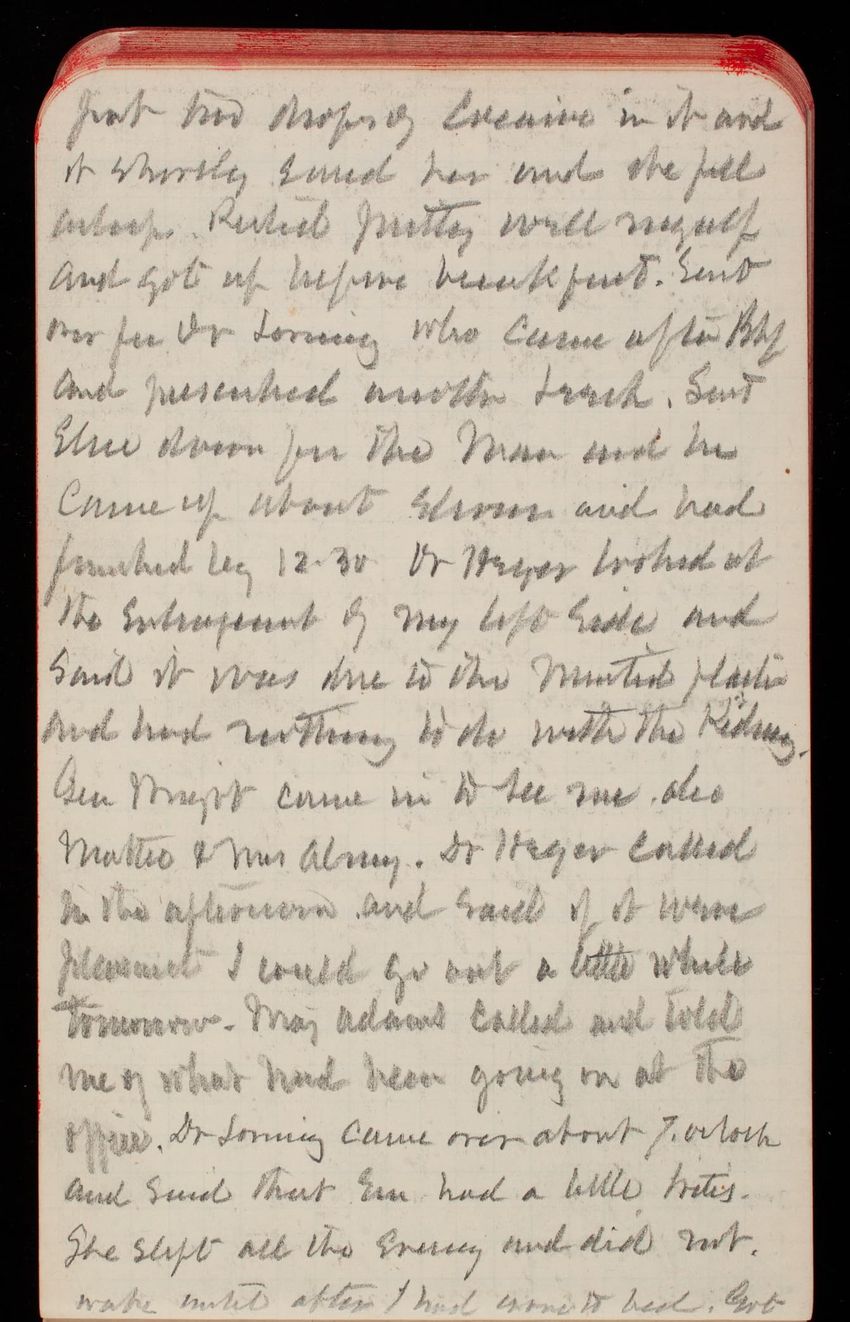 put two drops of Cocaine in it and
it shortly eased her and she fell
asleep. Rested pretty well myself
and got up before breakfast. Sent
over for Dr Loring who came after Bkf
and prescribed another wash. Sent
Elsie down for the Man and he
came up about eleven and had
finished by 12.30 Dr Heger looked at
the enlargement of my left side and
said it was due to the plaster
and had nothing to do with the Kidney.
Gen Wright came in to see me. also
Mattie & Mrs Almy. Dr Heger called
in the afternoon and said if it were
pleasant I could go out a little while
tomorrow. Maj Adams called and told
me of what had been going on at the
office. Dr Loring came over about 7. oclock
and said that Em had a little
She slept all the evening and did not.
wake until after I had gone to bed. Got